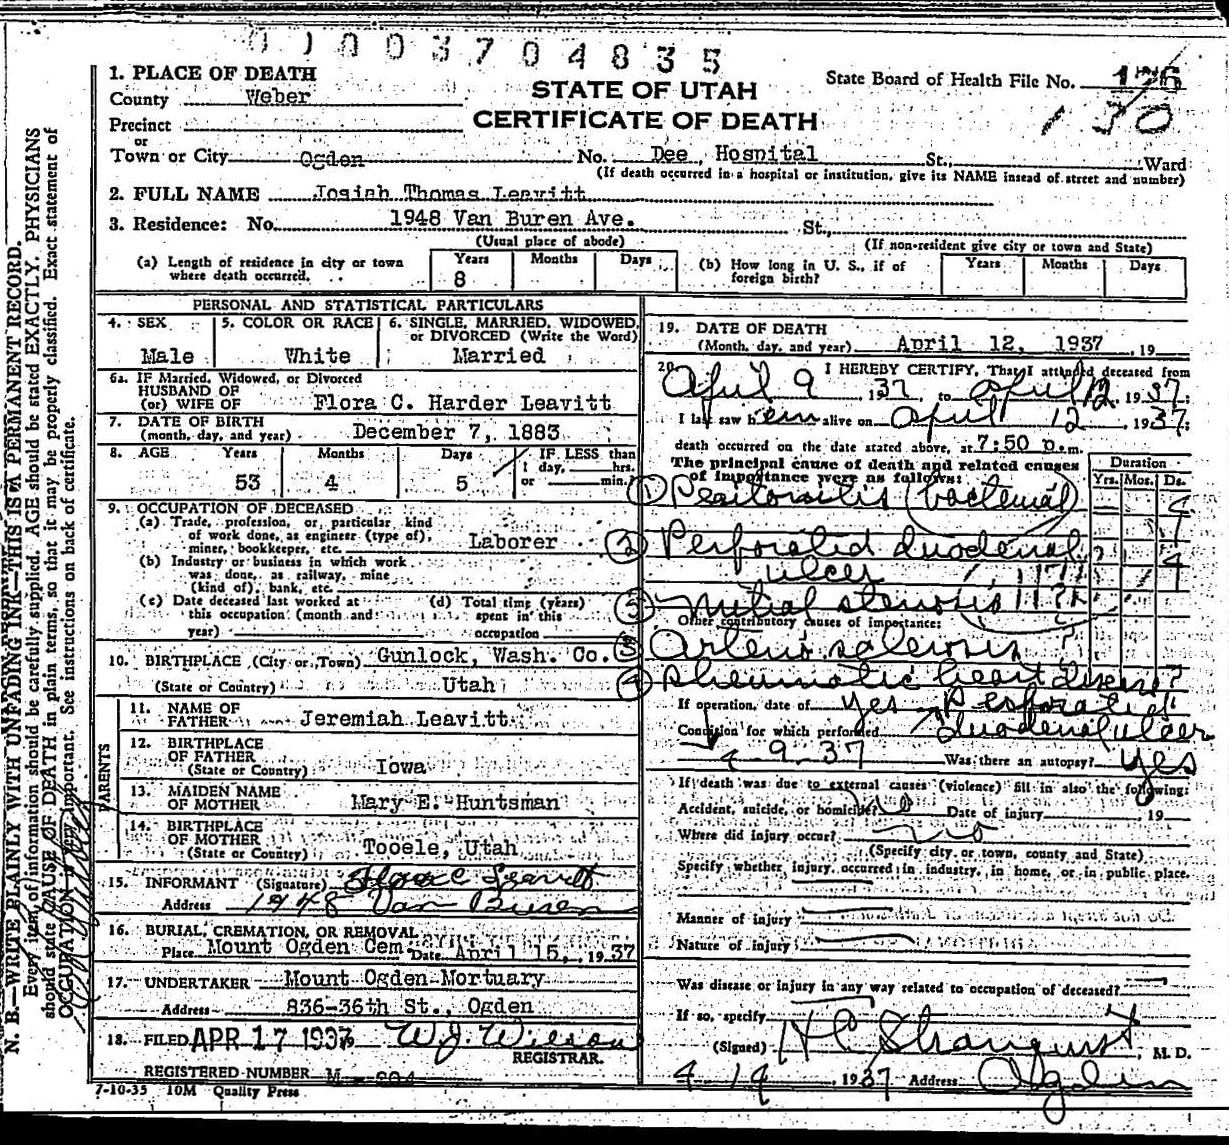 0100370 4835
1. PLACE OF DEATH
State Board of Health File No. 176
County Weber
STATE OF UTAH
130
Precinct
CERTIFICATE OF DEATH
or
Town or City Ogden No. Dee Hospital St., Ward
(If death occurred in a hospital or institution, give its NAME insead of street and number)
2. FULL NAME Josiah Thomas Leavitt
3. Residence: No. 1948 Van Buren Ave. St.,
(Usual place of abode) (If non-resident give city or town and State)
(a) Length of residence in city or town where death occurred. Years 8 Months Days
(b) How long in U. S., if of foreign birth? Years Months Days
PERSONAL AND STATISTICAL PARTICULARS
4. SEX Male
5. COLOR OR RACE White
6. SINGLE, MARRIED, WIDOWED, or DIVORCED (Write the Word) Married
6a. IF Married, Widowed, or Divorced
HUSBAND OF
(or) WIFE OF Flora C. Harder Leavitt
7. DATE OF BIRTH
(month, day, and year) December 7, 1883
8. AGE Years 53 Months 4 Days 5 IF LESS than
1 day, hrs.
or min.
9. OCCUPATION OF DECEASED
(a) Trade, profession, or particular kind
of work done, as engineer (type of),
miner, bookkeeper, etc. Laborer
(b) Industry or business in which work
was done, as railway, mine
(kind of), bank, etc.
(c) Date deceased last worked at
this occupation (month and
year)
(d) Total time (years)
spent in this
occupation
10. BIRTHPLACE (City or Town) Gunlock, Wash. Co.
(State or Country) Utah
PARENTS
11. NAME OF
FATHER Jeremiah Leavitt
12. BIRTHPLACE
OF FATHER
(State or Country) Iowa
13. MAIDEN NAME
OF MOTHER Mary E. Huntsman
14. BIRTHPLACE
OF MOTHER
(State or Country) Tooele, Utah
15. INFORMANT (Signature) Flora C Leavitt
Address 1948 Van Buren
16. BURIAL, CREMATION, OR REMOVAL
Place Mount Ogden Cem Date April 15, 1937
17. UNDERTAKER Mount Ogden Mortuary
Address 836-36th St., Ogden
18. FILED APR 17 1937 W. J. Wilson
REGISTRAR.
REGISTERED NUMBER M
7-10-35 10M Quality Press
19. DATE OF DEATH
(Month, day, and year) April 12, 1937, 19
20. I HEREBY CERTIFY, That I attended deceased from
April 9, 1937 to April 12, 1937;
I last saw h em alive on april 12, 1937;
death occurred on the date stated above, at 7:50 p.m.
The principal cause of death and related causes
of importance were as follows:
Duration
Yrs. Mos. Ds.
1 Peritonitis (bacterial) 4
2 Perforated duodenal ulcer ? 4
5 Mitral stenosis
Other contributory causes of importance:
3 Arterio sclerosis ?
4 Rheumatic heart disease ?
If operation, date of yes Perforated
Condition for which performed duodenal ulcer
4 9-37 Was there an autopsy? yes
If death was due to external causes (violence) fill in also the following:
Accident, suicide, or homicide? Date of injury 19
Where did injury occur? no
(Specify city or town, county and State)
Specify whether injury occurred in industry, in home, or in public place.
Manner of injury
Nature of injury
Was disease or injury in any way related to occupation of deceased?
If so, specify
(Signed) H C Stranquist, M. D.
4-14, 1937 Address Ogden
N. B.—WRITE PLAINLY WITH UNFADING INK—THIS IS A PERMANENT RECORD.
Every item of information should be carefully supplied. AGE should be stated EXACTLY. PHYSICIANS
should state CAUSE OF DEATH in plain terms, so that it may be properly classified. Exact statement of
OCCUPATION is very important. See instructions on back of certificate.